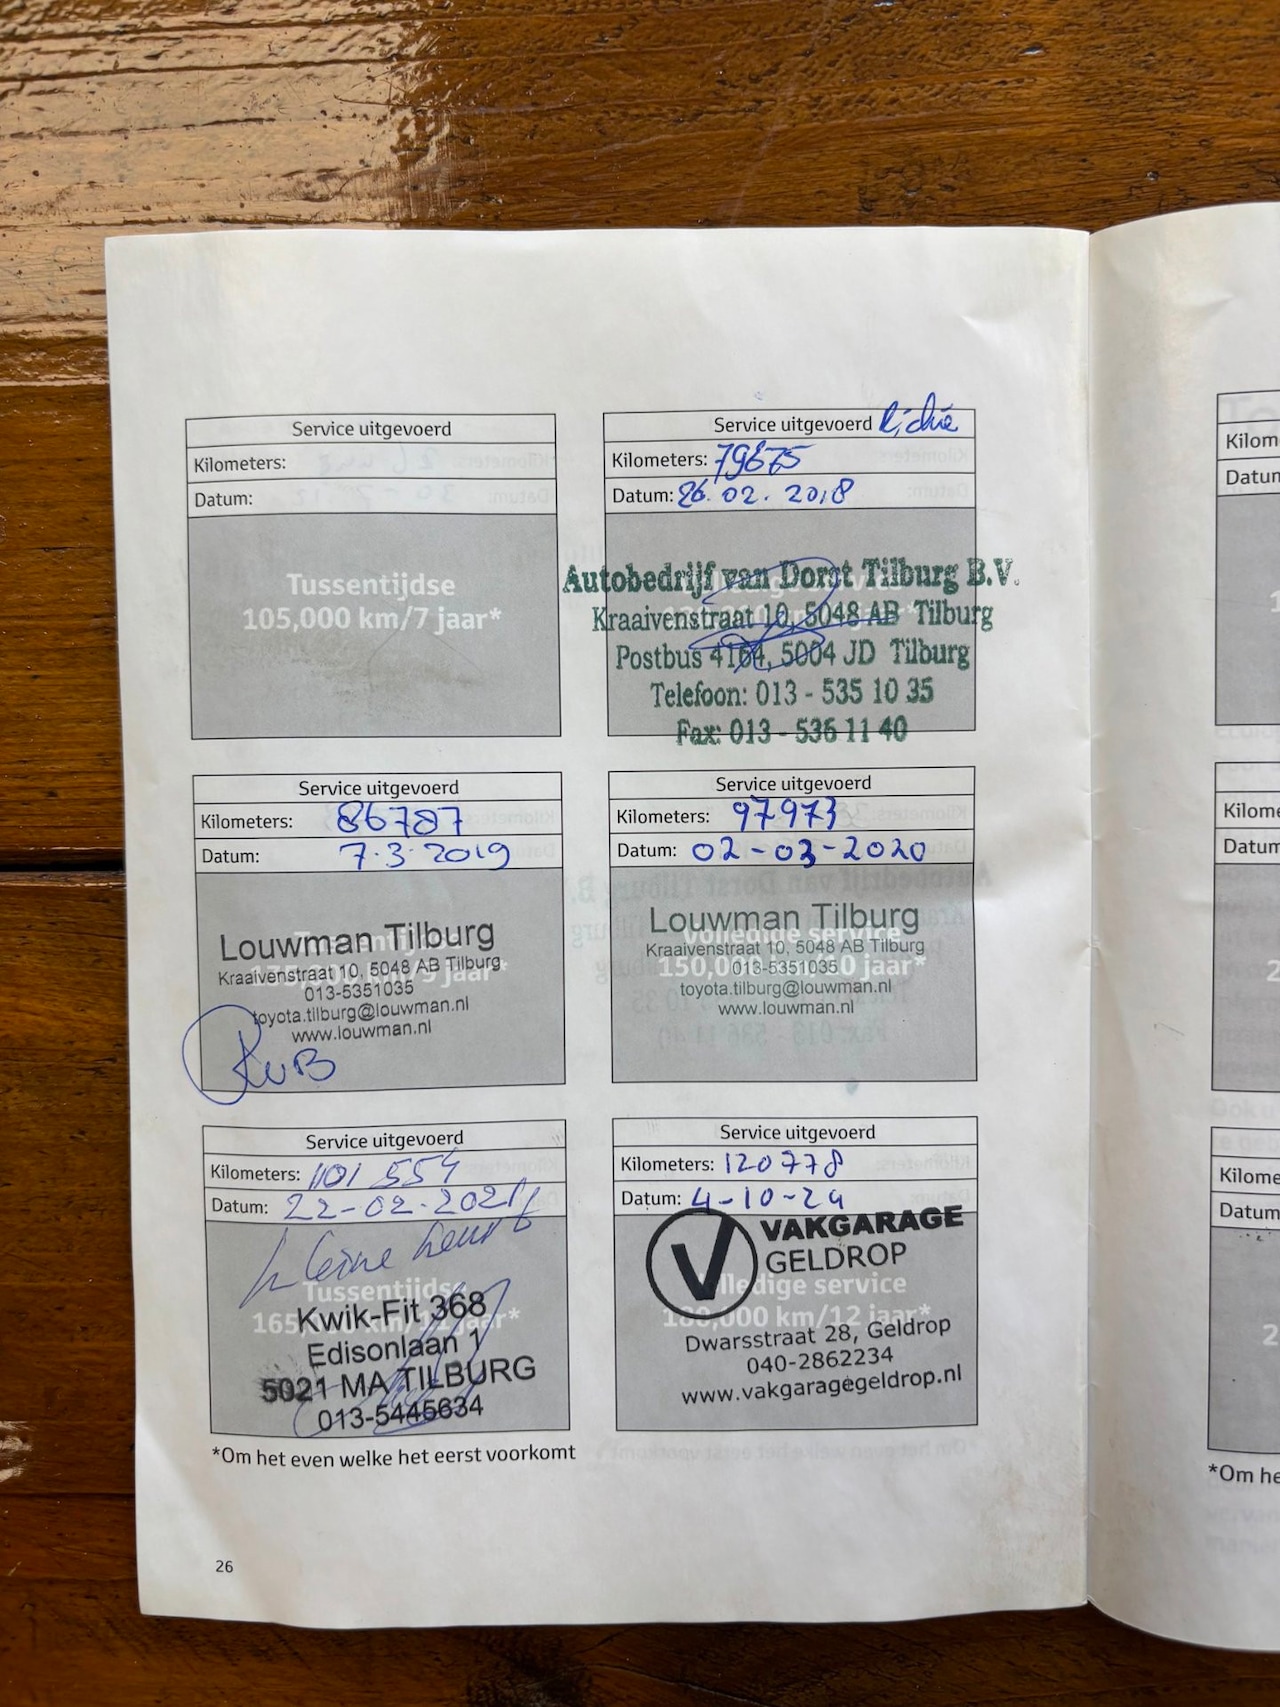 Service uitgevoerd
Kilometers:
Datum:
Tussentijdse
105,000 km/7 jaar*
Service uitgevoerd Richie
Kilometers: 79675
Datum: 26.02.2018
Autobedrijf van Dorst Tilburg B.V.
Kraaivenstraat 10, 5048 AB Tilburg
Postbus 4164, 5004 JD Tilburg
Telefoon: 013 - 535 10 35
Fax: 013 - 536 11 40
Service uitgevoerd
Kilometers: 86787
Datum: 7.3.2019
Tussentijdse
Louwman Tilburg
Kraaivenstraat 10, 5048 AB Tilburg
013-5351035
toyota.tilburg@louwman.nl
www.louwman.nl
RvB
Service uitgevoerd
Kilometers: 97973
Datum: 02-03-2020
Volledige service
150,000 km/10 jaar*
Louwman Tilburg
Kraaivenstraat 10, 5048 AB Tilburg
013-5351035
toyota.tilburg@louwman.nl
www.louwman.nl
Service uitgevoerd
Kilometers: 101 554
Datum: 22-02-2021
kleine beurt
Tussentijdse
165,000 km/11 jaar*
Kwik-Fit 368
Edisonlaan 1
5021 MA TILBURG
013-5445634
Service uitgevoerd
Kilometers: 120778
Datum: 4-10-24
Volledige service
180,000 km/12 jaar*
VAKGARAGE
GELDROP
Dwarsstraat 28, Geldrop
040-2862234
www.vakgaragegeldrop.nl
*Om het even welke het eerst voorkomt
26
Kilom
Datum
Kilome
Datum
Kilome
Datum
*Om he